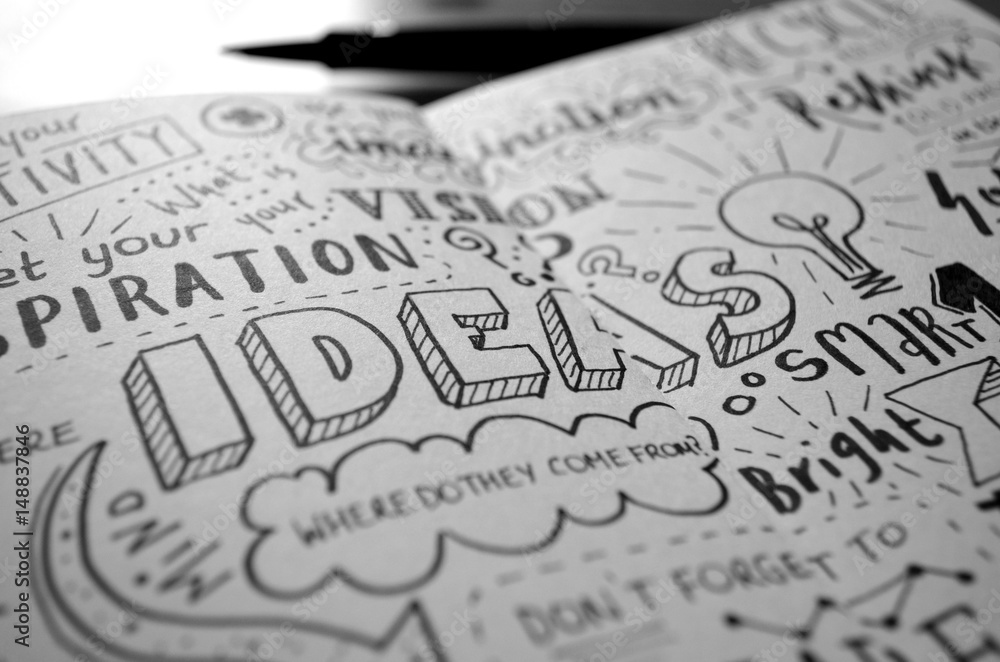 your
TIVITY
What is
your
VISION
imagination
RECYCLE
Rethink
et your
SPIRATION
IDEAS
SMART
WHERE DO THEY COME FROM?
Bright
ERE
MIND
DON'T FORGET TO
Adobe Stock | #148837846